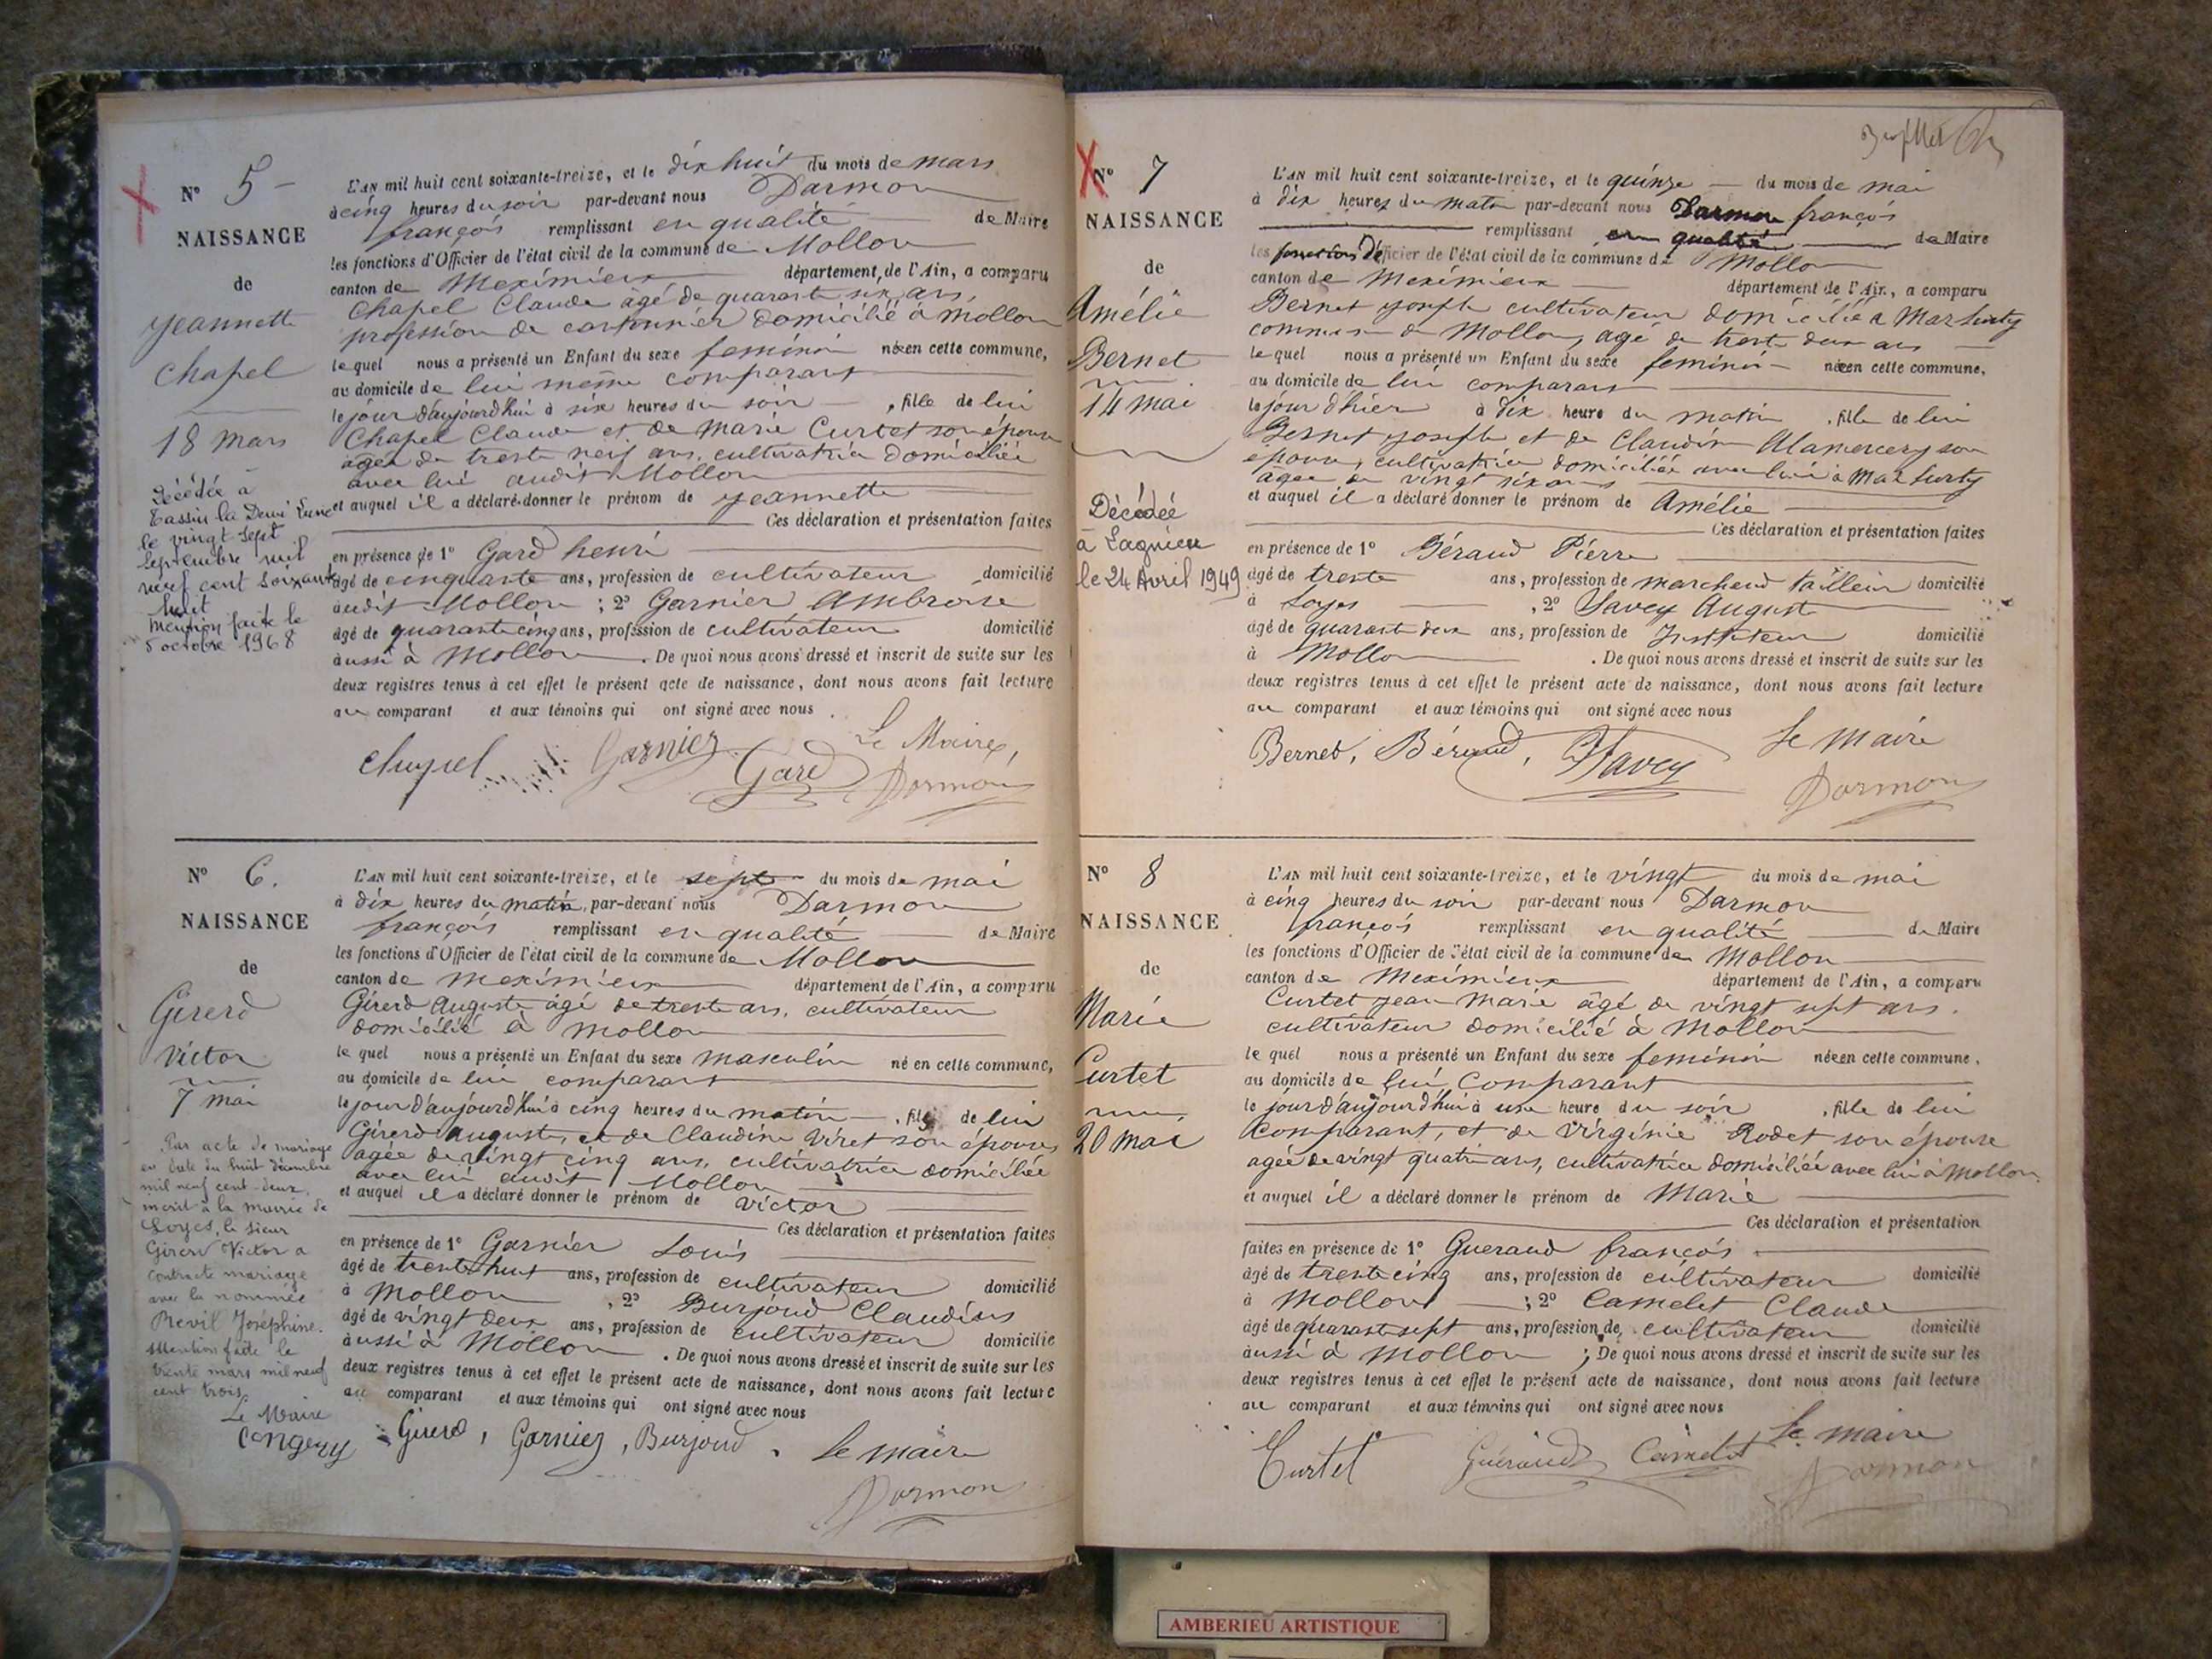 N° 5
NAISSANCE
de
Jeannette
Chapel
18 mars
Décédée à
Tassin la Demi Lune
le vingt sept
septembre mil
neuf cent soixante
huit
Mention faite le
5 octobre 1968
L'AN mil huit cent soixante-treize, et le dix huit du mois de mars
à cinq heures du soir par-devant nous Darmon
françois remplissant en qualité de Maire
les fonctions d'Officier de l'état civil de la commune de Mollon
canton de Meximieux département de l'Ain, a comparu
Chapel Claude âgé de quarante six ans,
profession de cantonnier domicilié à Mollon
le quel nous a présenté un Enfant du sexe feminin née en cette commune,
au domicile de lui même comparant
le jour d'aujourd'hui à six heures du soir , fille de lui
Chapel Claude et de Marie Curtet son épouse
agée de trente neuf ans, cultivatrice domiciliée
avec lui audit Mollon
et auquel il a déclaré donner le prénom de Jeannette
Ces déclaration et présentation faites
en présence de 1° Gard henri
âgé de cinquante ans, profession de cultivateur domicilié
audit Mollon ; 2° Garnier Ambroise
âgé de quarante cinq ans, profession de cultivateur domicilié
aussi à Mollon . De quoi nous avons dressé et inscrit de suite sur les
deux registres tenus à cet effet le présent acte de naissance, dont nous avons fait lecture
au comparant et aux témoins qui ont signé avec nous .
Chapel Garnier Gard Le Maire,
Darmon
N° 6.
NAISSANCE
de
Girerd
Victor
7 mai
Par acte de mariage
en date du huit décembre
mil neuf cent deux,
inscrit à la mairie de
Loyes, le sieur
Girerd Victor a
contracté mariage
avec la nommée
Revil Joséphine.
Mention faite le
trente mars mil neuf
cent trois.
Le Maire
L'AN mil huit cent soixante-treize, et le sept du mois de mai
à dix heures du matin, par-devant nous Darmon
françois remplissant en qualité de Maire
les fonctions d'Officier de l'état civil de la commune de Mollon
canton de Meximieux département de l'Ain, a comparu
Girerd Auguste âgé de trente ans, cultivateur
domicilié à Mollon
le quel nous a présenté un Enfant du sexe masculin né en cette commune,
au domicile de lui comparant
le jour d'aujourd'hui à cinq heures du matin , fils de lui
Girerd Auguste, et de Claudine Viret son épouse
agée de vingt cinq ans, cultivatrice domiciliée
avec lui audit Mollon
et auquel il a déclaré donner le prénom de Victor
Ces déclaration et présentation faites
en présence de 1° Garnier Louis
âgé de trente huit ans, profession de cultivateur domicilié
à Mollon , 2° Burjoud Claudius
âgé de vingt deux ans, profession de cultivateur domicilié
aussi à Mollon . De quoi nous avons dressé et inscrit de suite sur les
deux registres tenus à cet effet le présent acte de naissance, dont nous avons fait lecture
au comparant et aux témoins qui ont signé avec nous
Girerd, Garnier, Burjoud. Le maire
Darmon
N° 7
NAISSANCE
de
Amélie
Bernet
14 mai
Décédée
à Lagnieu
le 24 Avril 1949
L'AN mil huit cent soixante-treize, et le quinze du mois de mai
à dix heures du matin par-devant nous Darmon françois
remplissant en qualité de Maire
les fonctions d'Officier de l'état civil de la commune de Mollon
canton de Meximieux département de l'Ain, a comparu
Bernet Joseph cultivateur domicilié à
commune de Mollon, agé de trente deux ans
le quel nous a présenté un Enfant du sexe feminin née en cette commune,
au domicile de lui comparant
le jour d'hier à dix heure du matin , fille de lui
Bernet Joseph et de Claudine Alamercery son
epouse, cultivatrice domiciliée avec lui à
âgée de vingt six ans
et auquel il a déclaré donner le prénom de Amélie
Ces déclaration et présentation faites
en présence de 1° Béraud Pierre
âgé de trente ans, profession de marchand tailleur domicilié
à Loyes , 2° Savey Auguste
âgé de quarante deux ans, profession de Instituteur domicilié
à Mollon . De quoi nous avons dressé et inscrit de suite sur les
deux registres tenus à cet effet le présent acte de naissance, dont nous avons fait lecture
au comparant et aux témoins qui ont signé avec nous
Bernet, Béraud, Savey Le maire
Darmon
N° 8
NAISSANCE
de
Marie
Curtet
20 mai
L'AN mil huit cent soixante-treize, et le vingt du mois de mai
à cinq heures du soir par-devant nous Darmon
françois remplissant en qualité de Maire
les fonctions d'Officier de l'état civil de la commune de Mollon
canton de Meximieux département de l'Ain, a comparu
Curtet Jean Marie âgé de vingt sept ans.
cultivateur domicilié à Mollon
le quel nous a présenté un Enfant du sexe feminin née en cette commune,
au domicile de lui Comparant
le jour d'aujourd'hui à une heure du soir , fille de lui
Comparant, et de Virginie Rodet son épouse
agée de vingt quatre ans, cultivatrice domiciliée avec lui à Mollon.
et auquel il a déclaré donner le prénom de Marie
Ces déclaration et présentation
faites en présence de 1° Gueraud françois
âgé de trente cinq ans, profession de cultivateur domicilié
à Mollon ; 2° Camelet Claude
âgé de quarante sept ans, profession de cultivateur domicilié
aussi à Mollon ; De quoi nous avons dressé et inscrit de suite sur les
deux registres tenus à cet effet le présent acte de naissance, dont nous avons fait lecture
au comparant et aux témoins qui ont signé avec nous
Curtet Guéraud Camelet Le maire
Darmon
AMBERIEU ARTISTIQUE